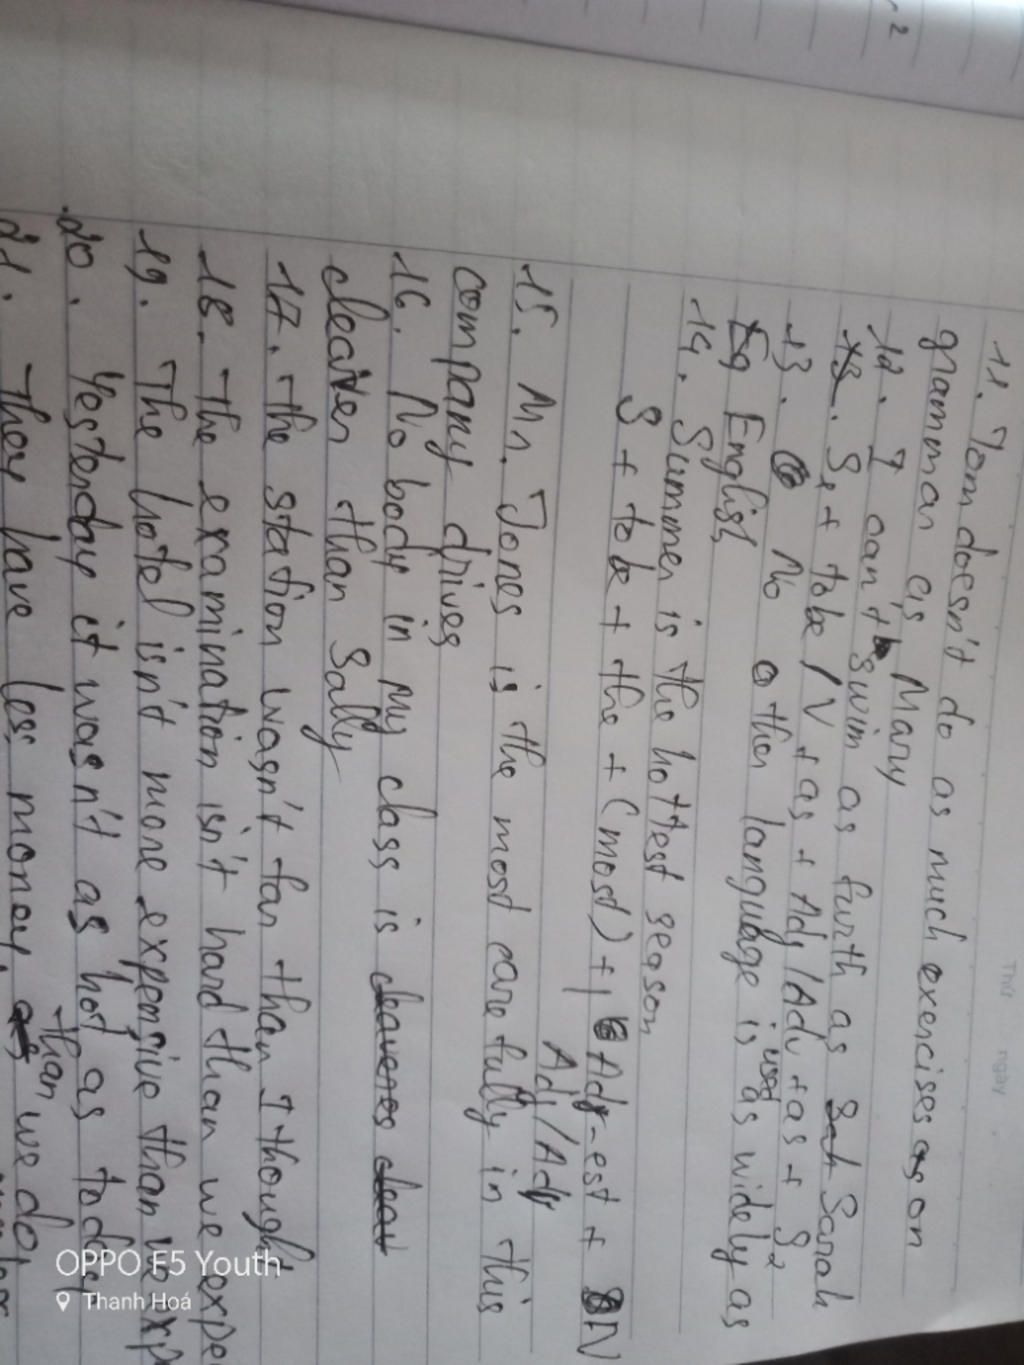 11. Tom doesn't do as much exercises on
grammar as Mary
12. I can't swim as furth as Sarah
13. S1 + tobe / V + as + Adj / Adv + as + S2
13. No other language is used as widely as
English
14. Summer is the hottest season
S + tobe + the + (most) + Adj-est + N
Adj/Adv
15. Mr. Jones is the most carefully in this
company drives
16. No body in my class is
clearer than Sally
17. the station wasn't far than I though
18. The examination isn't hard than we expe
19. The hotel isn't more expensive than we exp
20. Yesterday it wasn't as hot as today
21. They have less money than we do.
Thứ
ngày
2
OPPO F5 Youth
Thanh Hoá